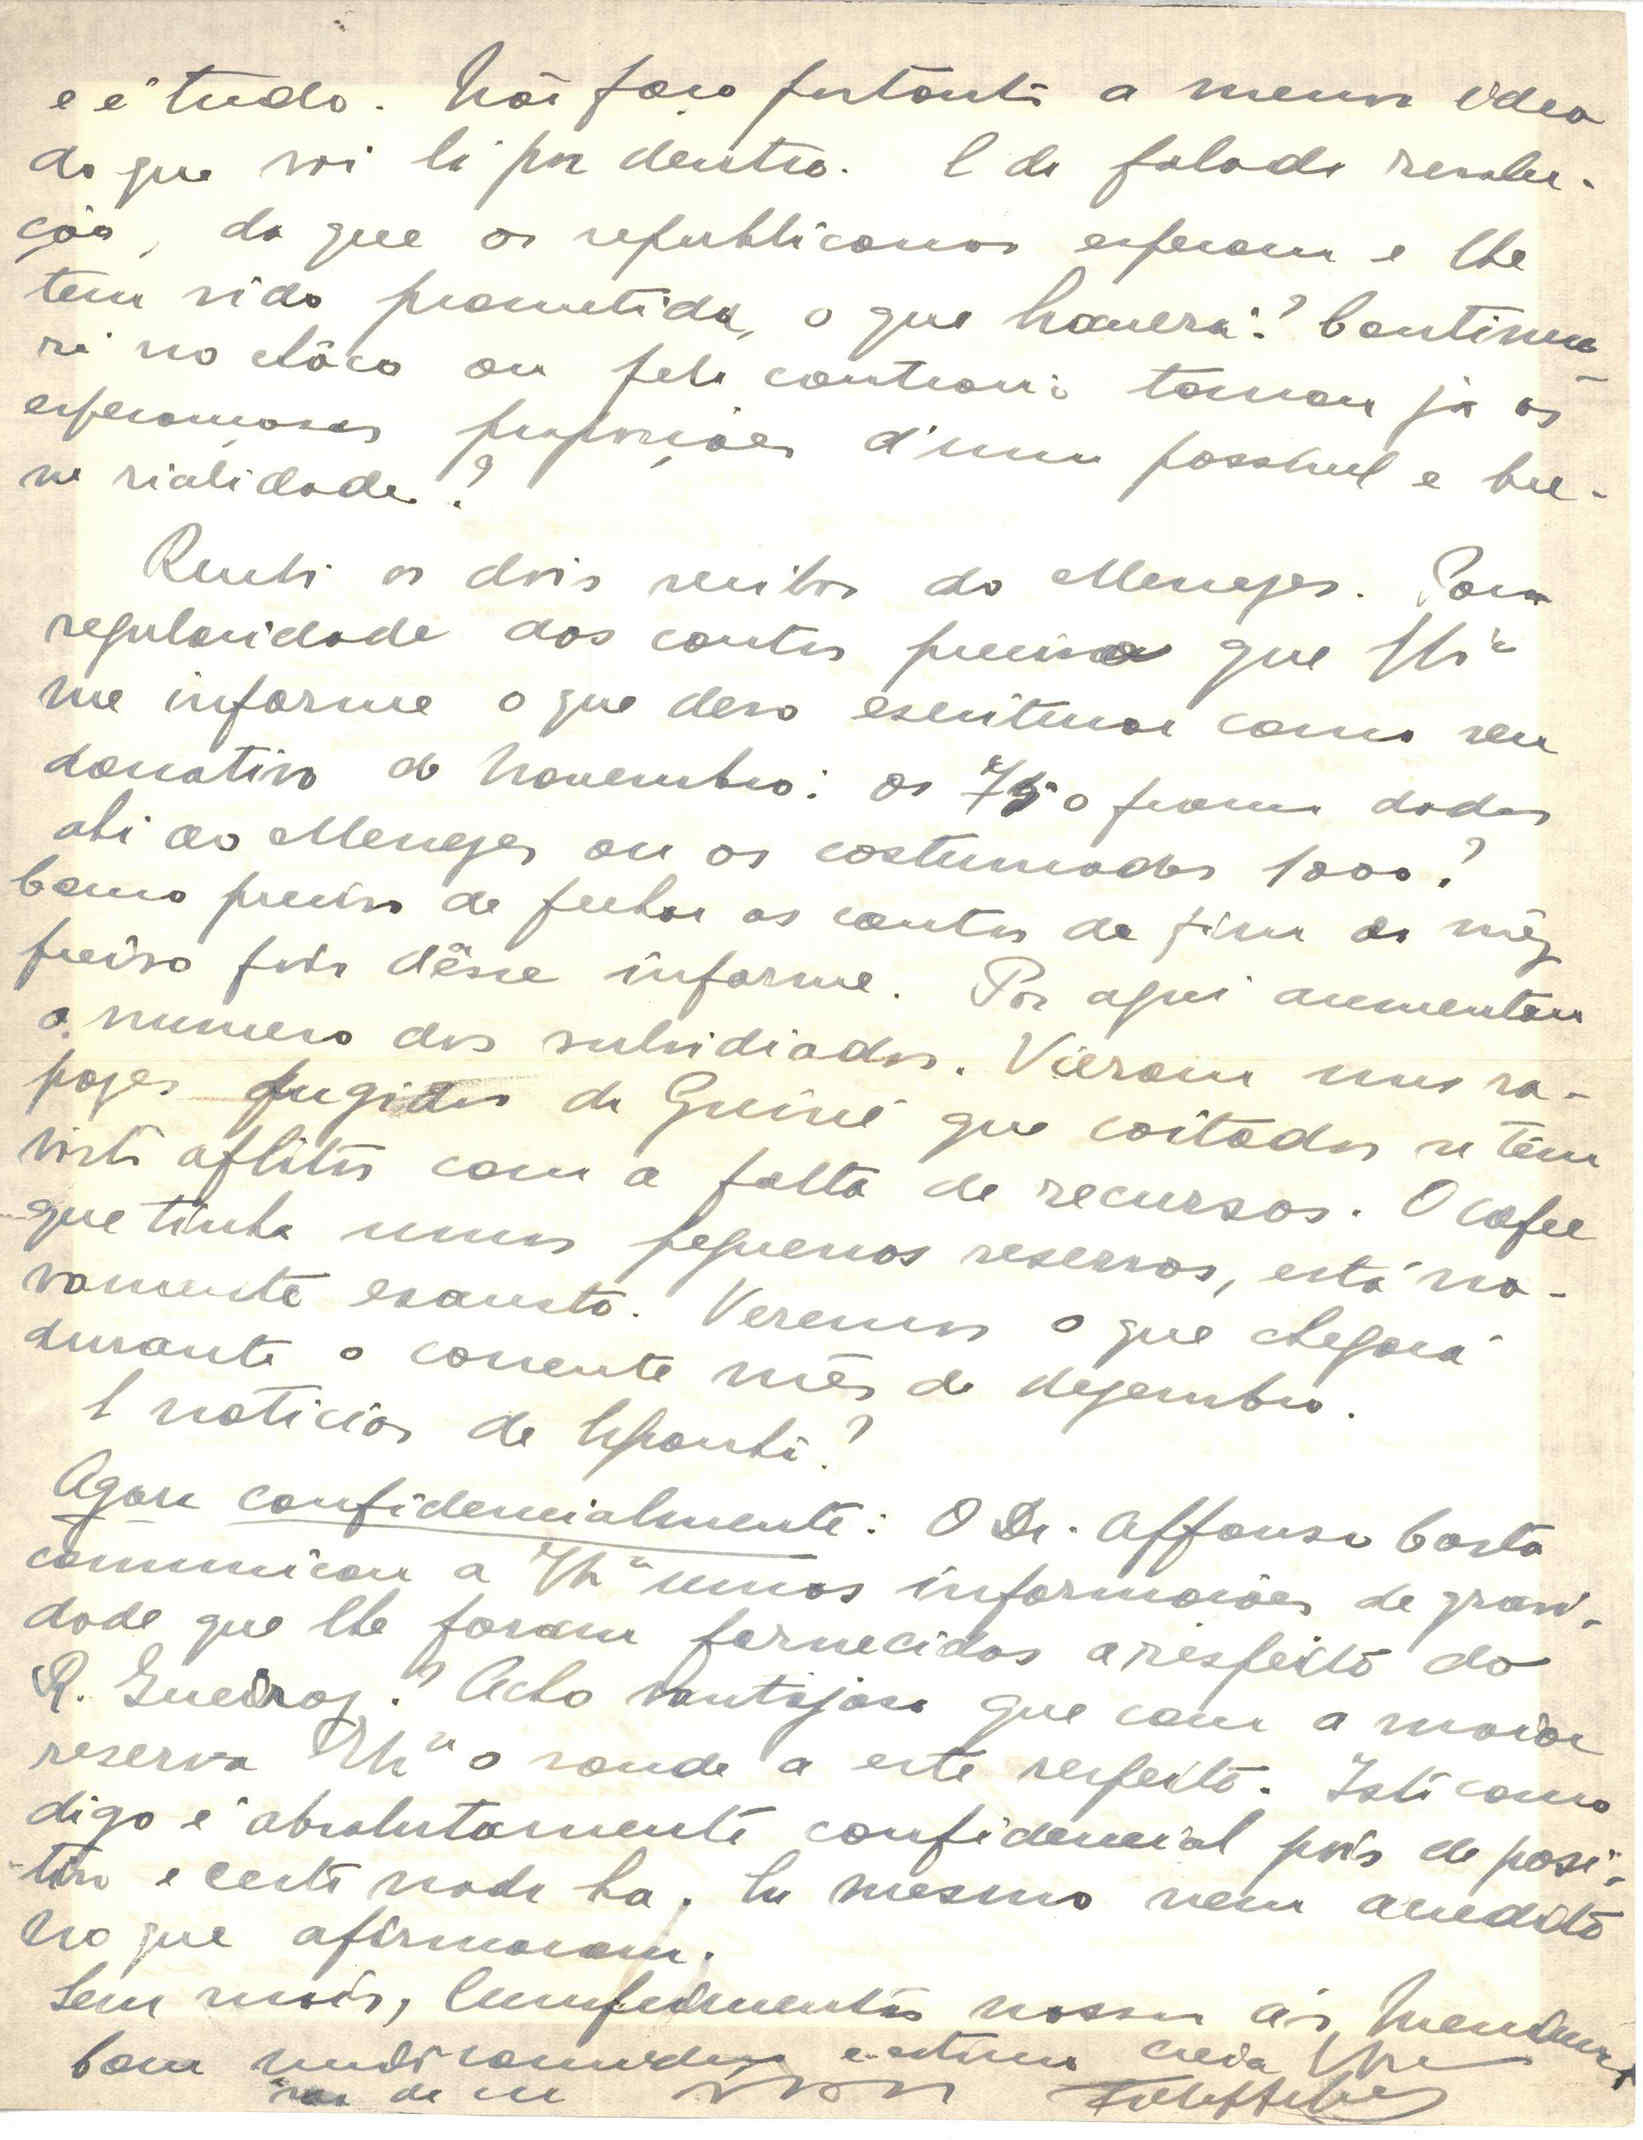 e é tudo. Não faço portanto a menor idea
do que vai lá por dentro. E da falada revolu-
ção, da que os republicanos esperam e lhe
tem sido prometida, o que haverá? Continua-
rá no chôco ou pelo contrario tomou já as
esperançosas proporções d'uma possivel e bre-
ve rialidade?
Recebi os dois recibos do Menezes. Para
regularidade das contas preciso que V. Ex.ª
me informe o que devo escriturar como seu
donativo de Novembro: os 750 francos dados
ahi ao Menezes ou os costumados 1000?
Como preciso de fechar as contas de fim do mêz
preciso pois dêsse informe. Por aqui aumentam
o numero dos subsidiados. Vieram uns ra-
pazes fugidos da Guiné que coitados se têm
visto aflitos com a falta de recursos. O cofre
que tinha umas pequenas reservas, está no-
vamente exausto. Veremos o que chegará
durante o corrente mês de dezembro.
E noticias de
Agora confidencialmente: O Dr. Affonso Costa
comunicou a V. Ex.ª umas informações de gravi-
dade que lhe foram fornecidas a respeito do
R. Queiroz? Acho vantajoso que com a maior
reserva V. Ex.ª o sonde a este respeito. Isto como
digo é absolutamente confidencial pois de posi-
tivo e certo nada ha. Eu mesmo nem acredito
no que afirmaram.
Sem mais, Cumprimentos nossos ás
Com muita consideração e estima creia